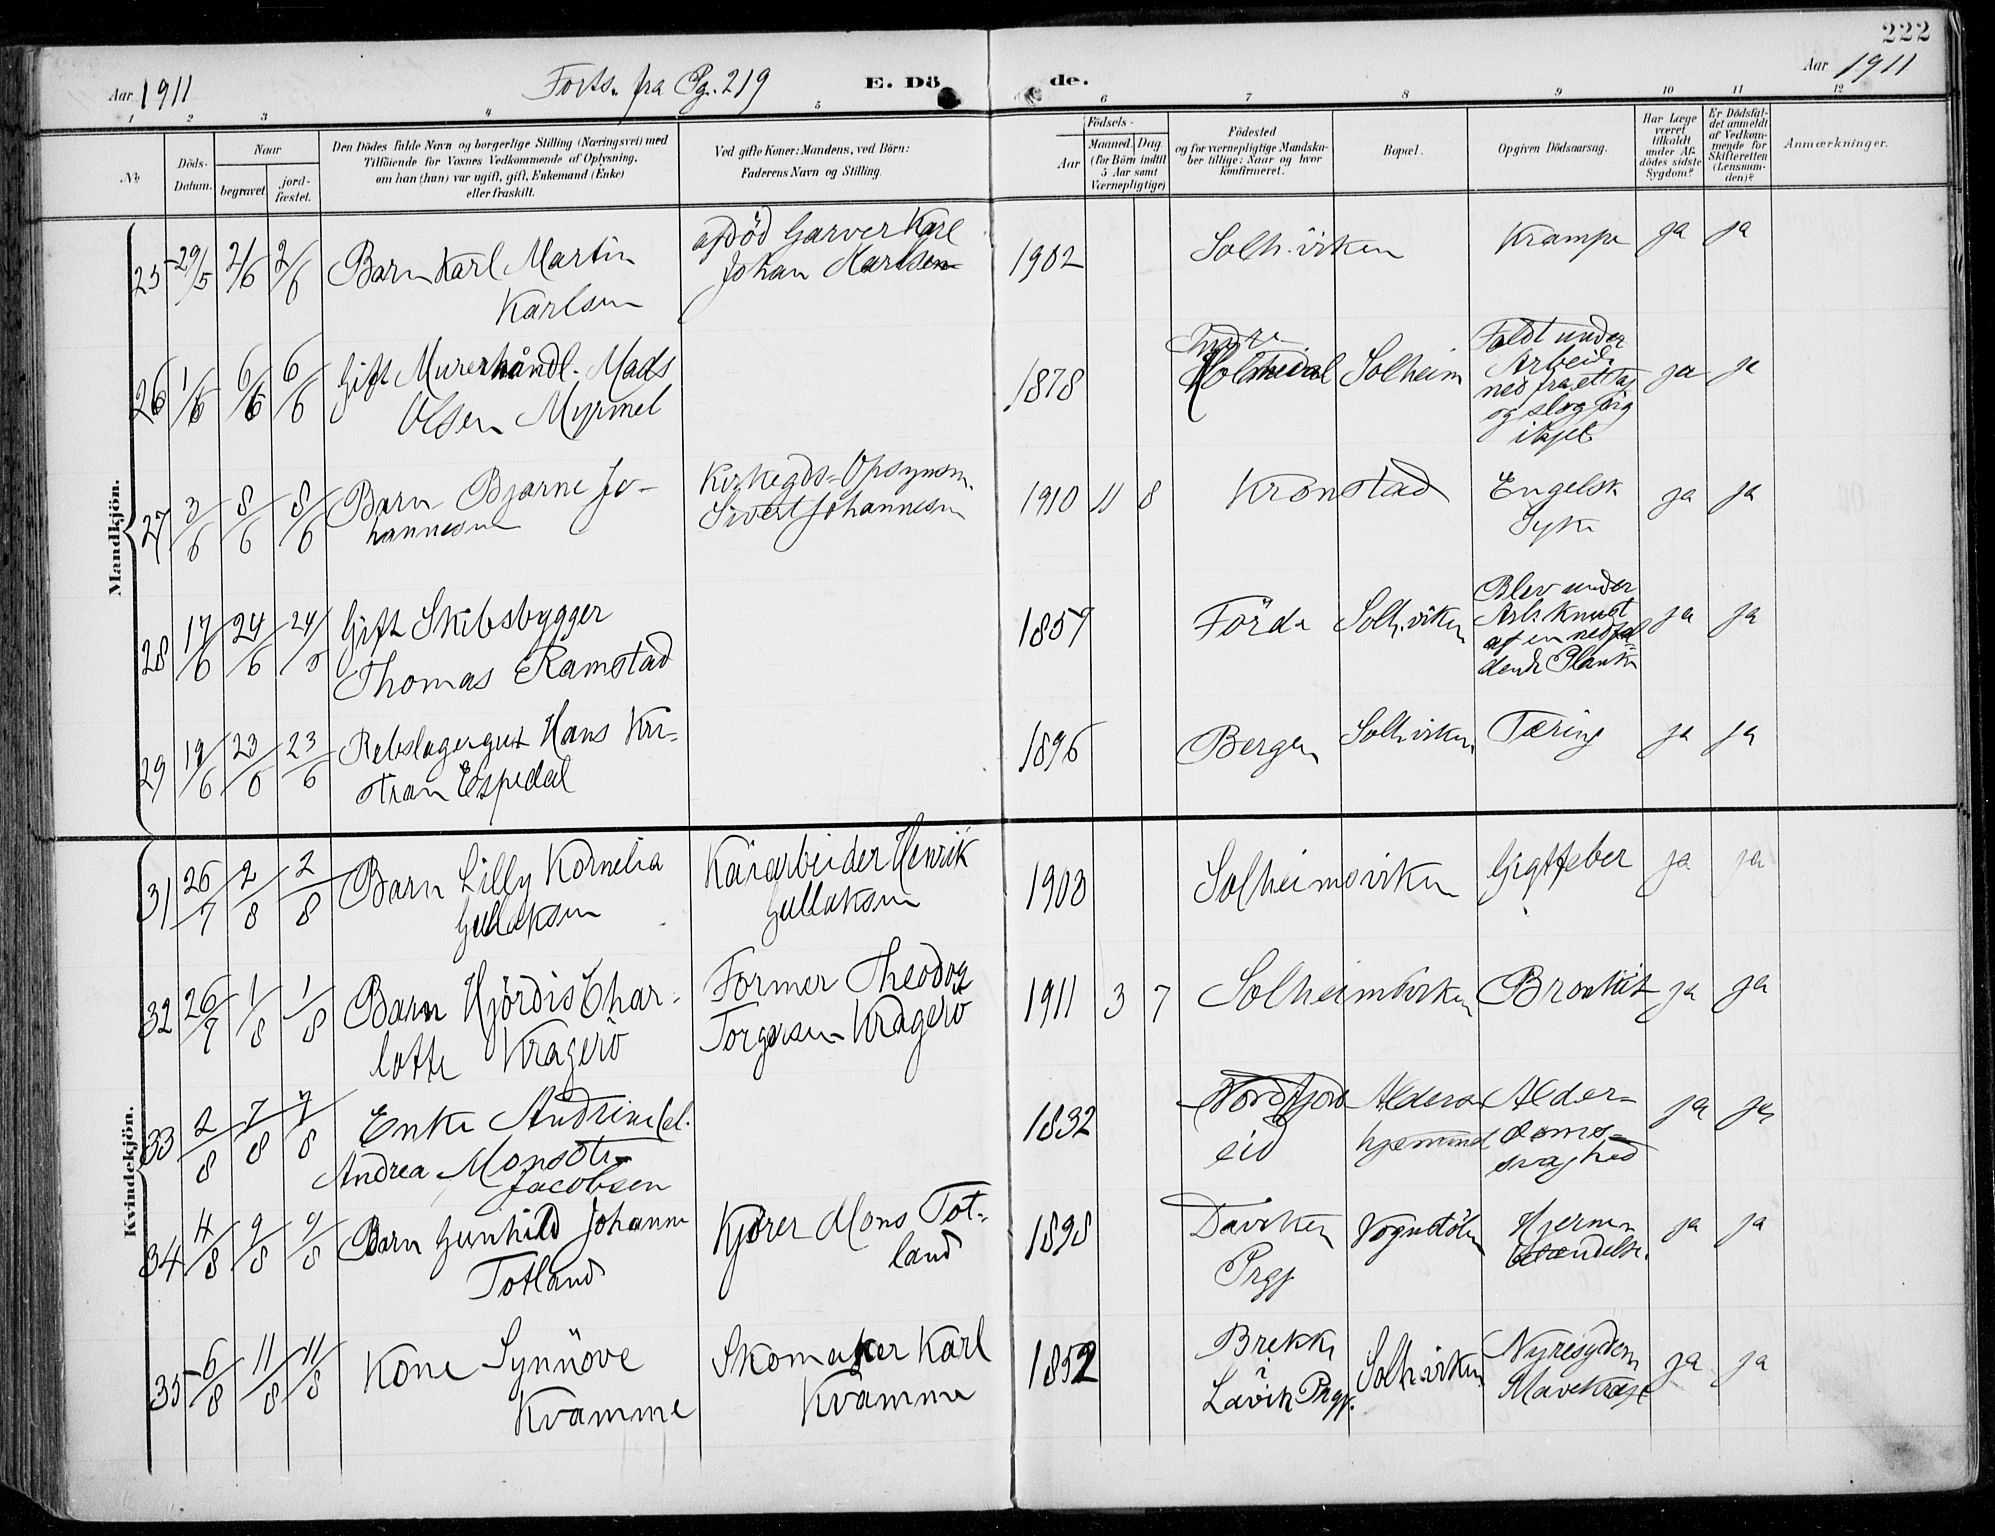 222
Aar 1911
Forts. fra Pg. 219
E. Dö de.
Aar 1911
1 2 3 4 5 6 7 8 9 10 11 12
No
Döds-Datum.
Naar
begravet
jord-fæstet.
Den Dödes fulde Navn og borgerlige Stilling (Næringsvei) med
Tilföiende for Voxnes Vedkommende af Oplysning,
om han (hun) var ugift, gift, Enkemand (Enke)
eller fraskilt.
Ved gifte Koner: Mandens, ved Börn:
Faderens Navn og Stilling.
Födsels-
Aar
Maaned. Dag.
(for Börn indtil
5 Aar samt
Værnepligtige)
Födested
og for værnepligtige Mandska-
ber tillige: Naar og hvor
konfirmeret.
Bopæl.
Opgiven Dödsaarsag.
Har Læge
været
tilkaldt
under Af-
dödes sidste
Sygdom?
Er Dödsfal-
det anmeldt
af Vedkom-
mende for
Skifteretten
(Lensman-
den)?
Anmærkninger.
Mandkjön.
25 29/5 2/6 2/6 Barn Karl Martin
Karlsen
afdöd Garver Karl
Johan Karlsen
1902 Solh.viken Krampe ja ja
26 1/6 6/6 6/6 Gift Murerhåndl. Mads
Olsen Myrmel
1878 Indre
Holmedal Solheim
Faldt under
Arbeide
ned fra et tag
og slog sig
ihjel
ja ja
27 3/6 8/6 8/6 Barn Bjarne Jo-
hannesen
Kirkegds-Opsynsm.
Sivert Johannesen
1910 11 8 Kronstad Engelsk
Syke
ja ja
28 17/6 24/6 24/6 Gift Skibsbygger
Thomas Ramstad
1857 Förde Solh.viken
Blev under
Arb. knust
af en nedfal-
dende Planke
ja ja
29 19/6 23/6 23/6 Rebslagergut Hans Kri-
stian Espedal
1896 Bergen Solh.viken Tæring ja ja
Kvindekjön.
31 26/7 2/8 2/8 Barn Lilly Kornelia
Gullaksen
Kaiarbeider Henrik
Gullaksen
1903 Solheimsviken Gigtfeber ja ja
32 26/7 1/8 1/8 Barn Hjördis Char-
lotte Kragerö
Former Theodor
Torgersen Kragerö
1911 3 7 Solheimsviken Bronkit ja ja
33 2/8 7/8 7/8 Enke Andrine el.
Andrea Monsdtr
Jacobsen
1832 Nordfjord
eid
Alders
hjemmet
Alder-
doms-
svaghed
ja ja
34 4/8 9/8 9/8 Barn Gunhild Johanne
Totland
Kjörer Mons Tot-
land
1898 Daviken
Prgj
Vognstölen
Hjernen
betændelse.
ja ja
35 6/8 11/8 11/8 Kone Synnöve
Kvamme
Skomaker Karl
Kvamme
1852 Brekke
i
Lavik Prgj.
Solh.viken
Nyresygdom
Mavekræft
ja ja